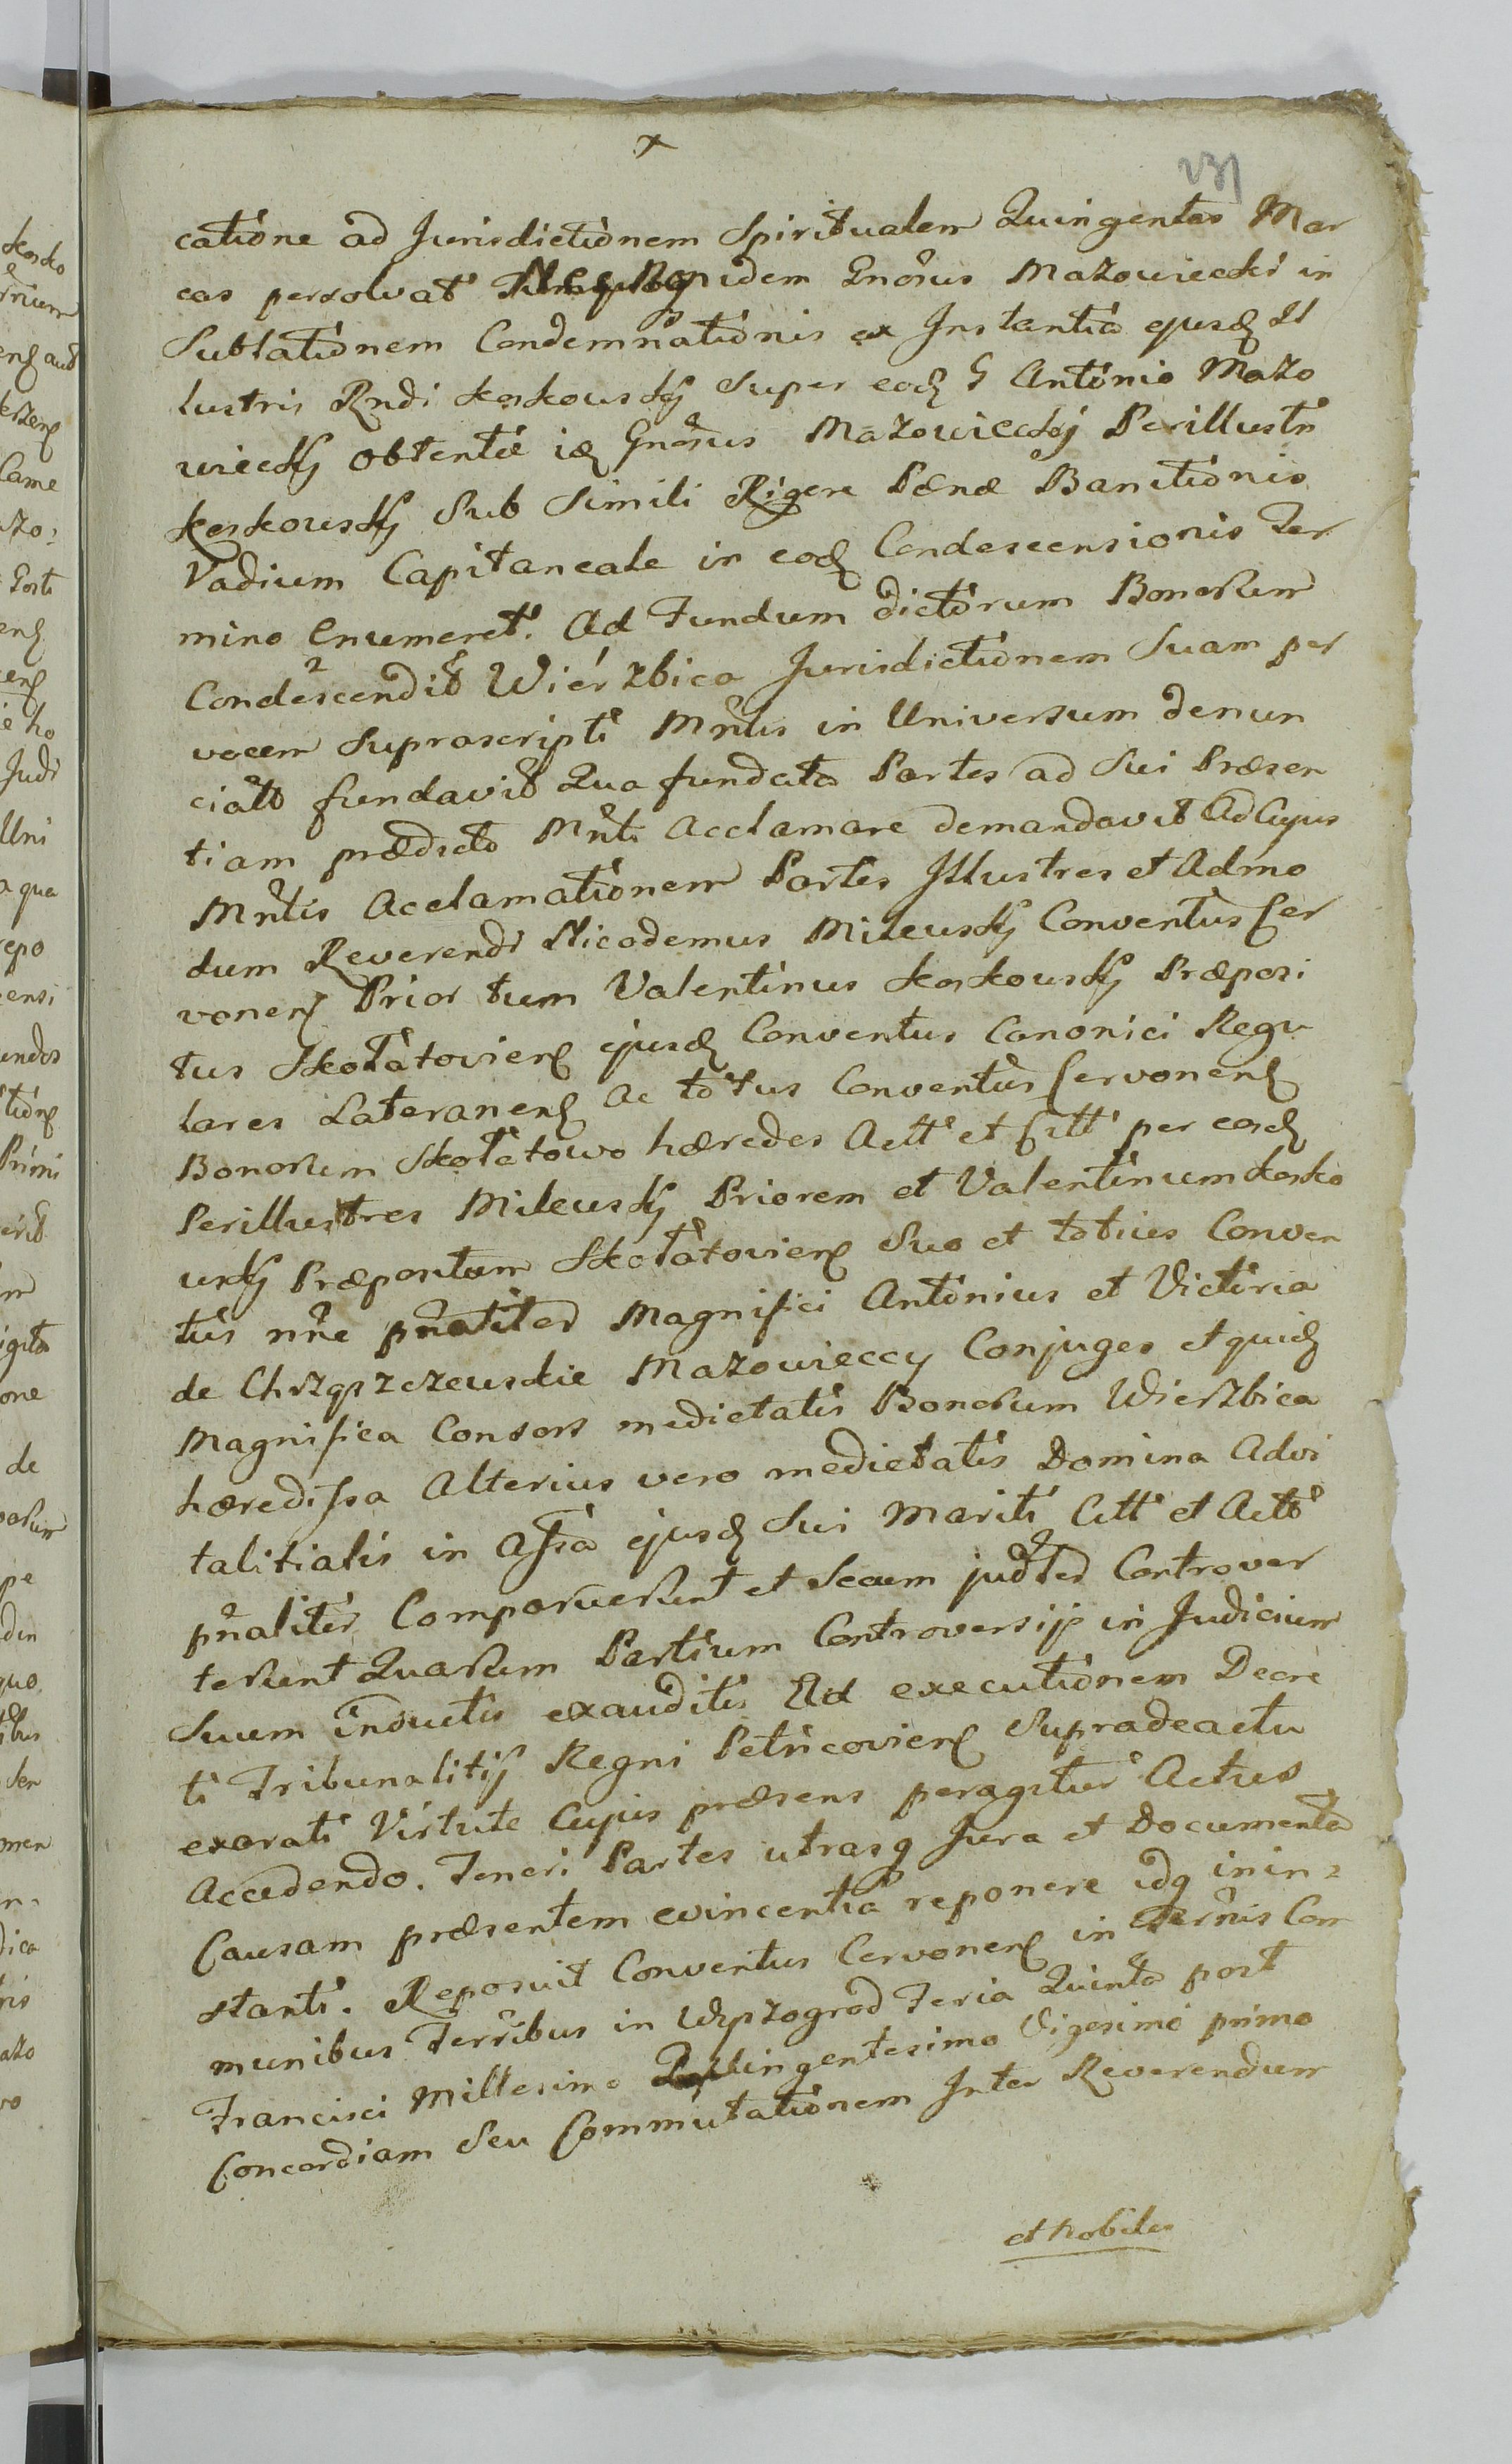 x
231
catione ad Jurisdictionem Spiritualem Quingentas Mar
cas persolvat idem Gnosus Mazowiecki in
Sublationem Condemnationis ex Instantia ejusd Il
lustris Rndi Koskowskÿ Super eod G Antonio Mazo
wieckÿ obtentæ id Gnosus Mazowieckÿ Perillustri
Koskowskÿ Sub Simili Rigore Pœnæ Banitionis
Vadium Capitaneale in eod Condescensionis Ter
mino enumeret. Ad Fundum dictorum Bonorum
Condescendit Wierzbica Jurisdictionem Suam per
vocem Suprascripti Mntlis in Universum denun
ciatto fundavit Qua fundata Partes ad Sui Præsen
tiam prædicto Mntli Acclamare demandavit Ad Cujus
Mntlis Acclamationem Partes Illustres et Admo
dum Reverendi Nicodemus Mileuskÿ Conventus Cer
vonen Prior tum Valentinus Koskouskÿ Præposi
tus Skołatovien ejusd Conventus Canonici Regu
lares Lateranen Ac totus Conventus Cervonen
Bonorum Skołatowo hæredes Actt et Citt per eosd
Perillustres Mileuskÿ Priorem et Valentinum Kosko
uskÿ Præpositum Skołatovien Suo et totius Conven
tus nne pnaliter Magnifici Antonius et Victoria
de Chrząszczewskie Mazowieccy Conjuges et quid
Magnifica Consors medietatis Bonorum Wierzbica
hæredissa Alterius vero medietatis Domina Advi
talitialis in Assa ejusd Sui Mariti Citt et Actt
pnaliter Comparuerunt et Secum judter Controver
terunt Quarum Partium Controversijs in Judicium
Suum inductis exauditis Ad executionem Decre
ti Tribunalitij Regni Petricovien Supradeactu
exarati Virtute Cujus præsens peragitur Actus
Accedendo. Teneri Partes utrasq Jura et Documenta
Causam præsentem evincentia reponere idq in in-
stanti. Reposuit Conventus Cervonen in Termis Com
munibus Terribus in Wyszogrod Feria Quinta post
Francisci Millesimo Quingentesimo Vigesimo primo
Concordiam Seu Commutationem Inter Reverendum
et Nobiles